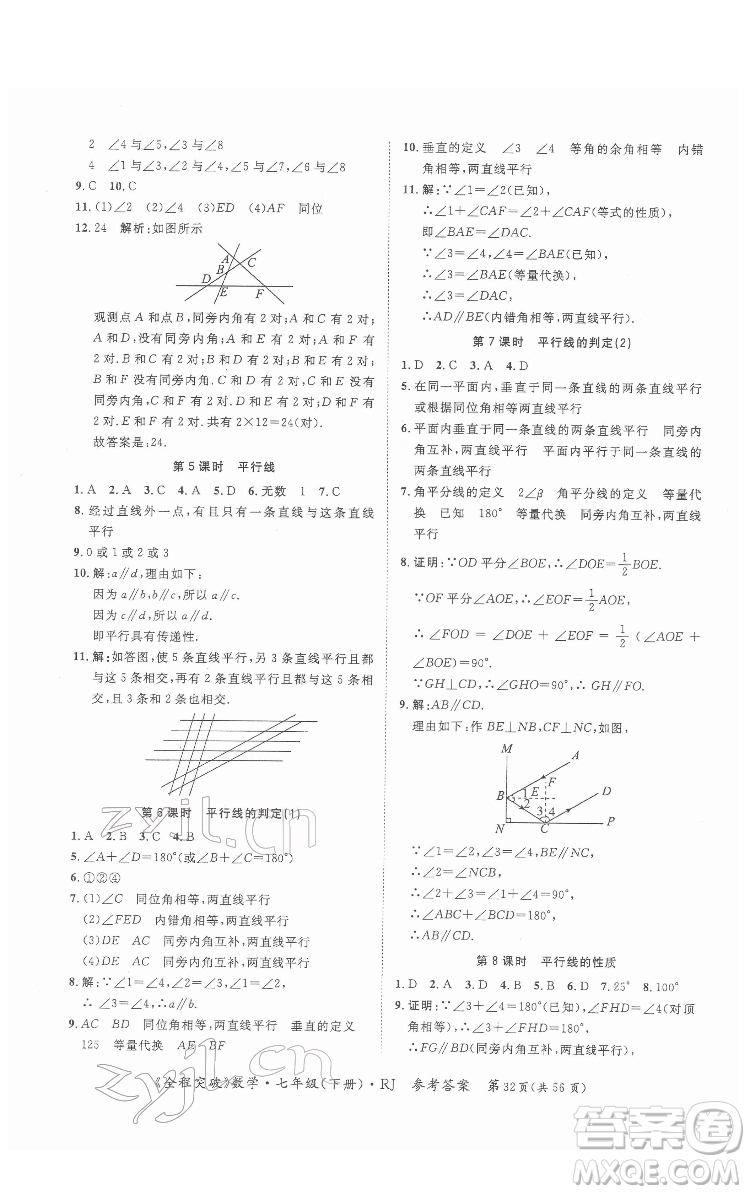 2 ∠4与∠5,∠3与∠8
4 ∠1与∠3,∠2与∠4,∠5与∠7,∠6与∠8
9.C 10.C
11.(1)∠2 (2)∠4 (3)ED (4)AF 同位
12.24 解析:如图所示
A
B
C
D
E
F
观测点A和点B,同旁内角有2对;A和C有2对;
A和D,没有同旁内角;A和E有2对;A和F有2对;
B和C有2对;B和D有2对;B和E有2对;B和F
没有同旁内角;C和D有2对;C和E,没有同旁内
角;C和F有2对;D和E有2对;D和F有2对;E
和F有2对.共有2×12=24(对).
故答案是:24.
第5课时 平行线
1.A 2.A 3.C 4.A 5.D 6.无数 1 7.C
8.经过直线外一点,有且只有一条直线与这条直线
平行
9.0或1或2或3
10.解:a∥d,理由如下:
因为a∥b,b∥c,所以a∥c.
因为c∥d,所以a∥d.
即平行具有传递性.
11.解:如答图,使5条直线平行,另3条直线平行且都
与这5条直线相交,再有2条直线平行且都与这5条
相交,且3条和2条也相交.
第6课时 平行线的判定(1)
1.A 2.B 3.C 4.B
5.∠A+∠D=180°(或∠B+∠C=180°)
6.①②④
7.(1)∠C 同位角相等,两直线平行
(2)∠FED 内错角相等,两直线平行
(3)DE AC 同旁内角互补,两直线平行
8.解:∵∠1=∠2,∠2+∠3=180°,
∴∠1+∠3=180°,∴a∥b.
9.AC BD 同位角相等,两直线平行 垂直的定义
125 等量代换 AE BF
10.垂直的定义 ∠3 ∠4 等角的余角相等 内错
角相等,两直线平行
11.解:∵∠1=∠2(已知),
∴∠1+∠CAF=∠2+∠CAF(等式的性质),
即∠BAE=∠DAC.
∵∠3=∠4(已知),∠4=∠BAE(已知),
∴∠3=∠BAE(等量代换),
∴∠3=∠DAC,
∴AD∥BE(内错角相等,两直线平行).
第7课时 平行线的判定(2)
1.D 2.C 3.A 4.D
5.在同一平面内,垂直于同一条直线的两条直线平行
或根据同位角相等两直线平行
6.平面内垂直于同一条直线的两条直线平行 同旁内
角互补,两直线平行 平面内垂直于同一条直线的
两条直线平行
7.角平分线的定义 2∠β 角平分线的定义 等量代
换 已知 180° 等量代换 同旁内角互补,两直线
平行
8.证明:∵OD平分∠BOE,∴∠DOE=1/2∠BOE.
∵OF平分∠AOE,∴∠EOF=1/2∠AOE,
∴∠FOD=∠EOF+∠DOE=1/2(∠AOE+
∠BOE)=90°.
∵GH⊥CD,∴∠GHO=90°,∴GH∥FO.
9.解:AB∥CD.
理由如下:作BE⊥NB,CF⊥NC,如图,
M
A
F
D
B
1
E
2
3
4
N
C
P
∵∠1=∠2,∠3=∠4,BE∥NC,
∴∠2+∠3=90°,
∴∠1+∠4=90°,
∴∠2+∠3+∠1+∠4=180°,
即∠ABC+∠BCD=180°,
∴AB∥CD.
第8课时 平行线的性质
1.D 2.D 3.D 4.C 5.D 6.B 7.25° 8.100°
9.证明:∵∠3+∠4=180°(已知),∠FHD=∠4(对顶
角相等),∴∠3+∠FHD=180°,
∴FG∥BD(同旁内角互补,两直线平行),
《全程突破》数学·七年级(下册)·RJ 参考答案 第32页(共56页)
zyjl.cn
答案圈
MXQE.COM